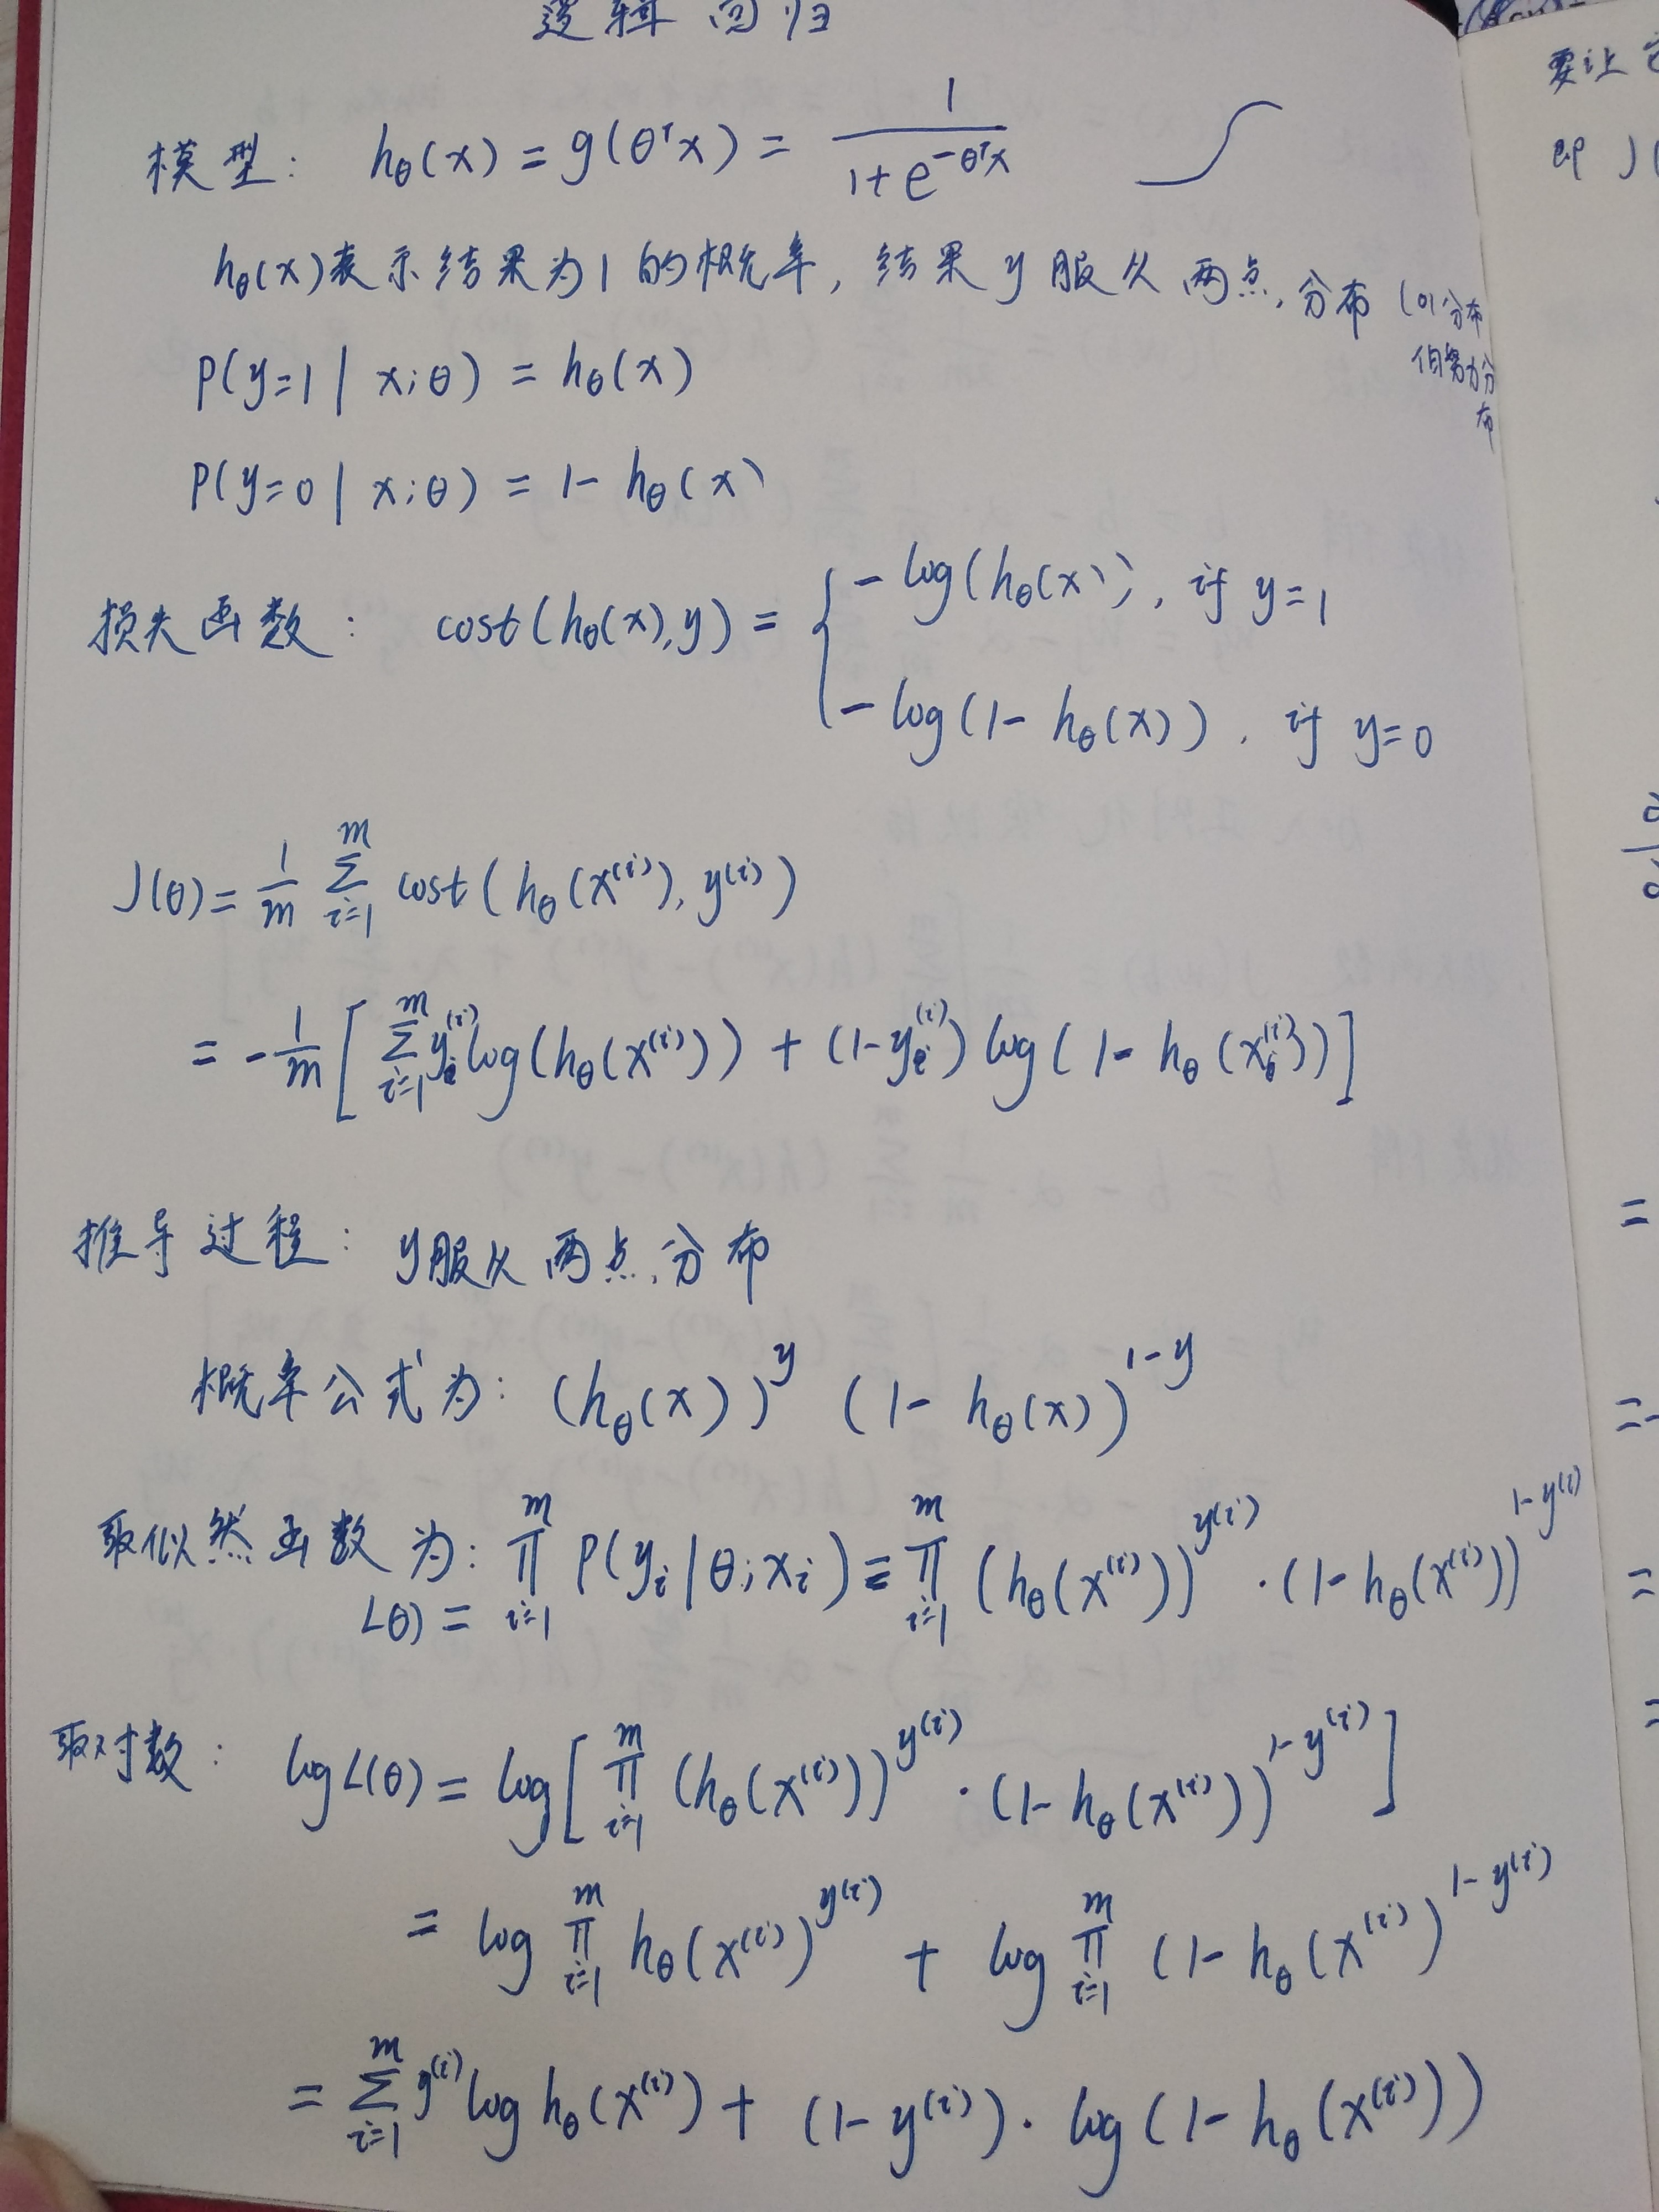 逻辑回归
模型: hθ(x) = g(θᵀx) = 1/(1+e^(-θᵀx))
hθ(x)表示结果为1的概率, 结果y服从两点分布 (01分布
伯努力分
布
P(y=1 | x;θ) = hθ(x)
P(y=0 | x;θ) = 1- hθ(x)
损失函数: cost(hθ(x),y) = { -log(hθ(x)), if y=1
-log(1- hθ(x)), if y=0
J(θ) = 1/m ∑_{i=1}^{m} cost(hθ(x^(i)), y^(i))
= -1/m [ ∑_{i=1}^{m} y^(i) log(hθ(x^(i))) + (1-y^(i)) log(1- hθ(x^(i))) ]
推导过程: y服从两点分布
概率公式为: (hθ(x))^y (1- hθ(x))^(1-y)
取似然函数为: ∏_{i=1}^{m} P(y_i|θ;x_i) = ∏_{i=1}^{m} (hθ(x^(i)))^(y^(i)) · (1- hθ(x^(i)))^(1-y^(i))
L(θ) =
取对数: log L(θ) = log[ ∏_{i=1}^{m} (hθ(x^(i)))^(y^(i)) · (1- hθ(x^(i)))^(1-y^(i)) ]
= log ∏_{i=1}^{m} hθ(x^(i))^(y^(i)) + log ∏_{i=1}^{m} (1- hθ(x^(i))^(1-y^(i))
= ∑_{i=1}^{m} y^(i) log hθ(x^(i)) + (1- y^(i)) · log(1- hθ(x^(i)))
要让
即 J(